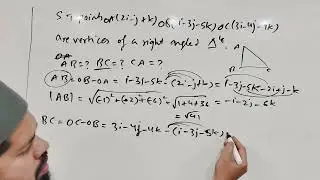 S.T. point A(2i-j+k) B(i-3j-5k) C(3i-4j-4k)
are vertices of a right angled Δ.
AB=? BC=? CA=?
AB=OB-OA=i-3j-5k-(2i-j+k)=i-3j-5k-2i+j-k
=-i-2j-6k
|AB|=√(-1)²+(-2)²+(-6)²=√1+4+36
=√41
BC=OC-OB=3i-4j-4k-(i-3j-5k)
A
B
C